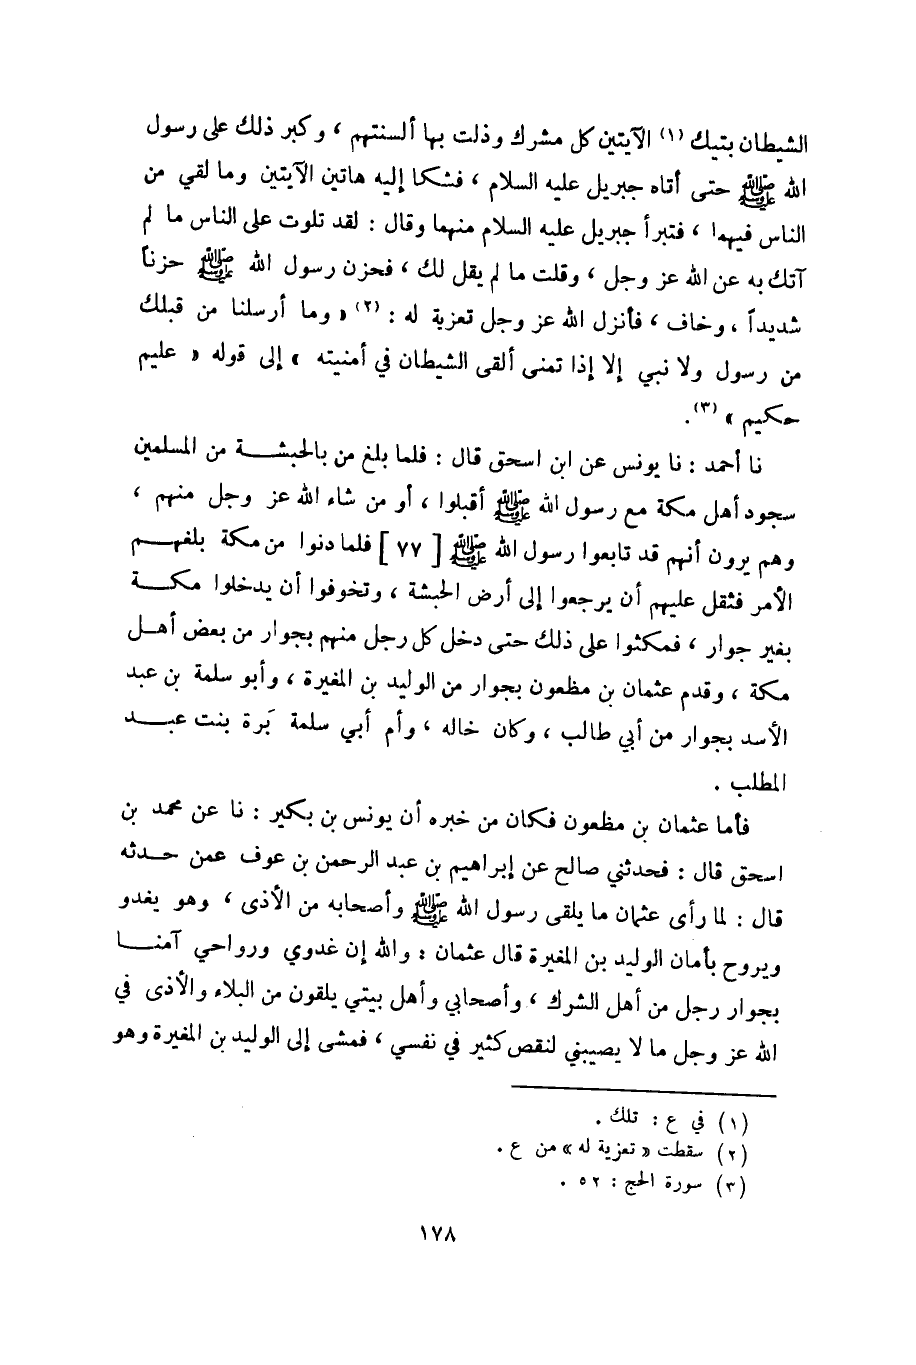 الشيطان بتيك (١) الآيتين كل مشرك وذلت بها ألسنتهم ، وكبر ذلك على رسول
الله ﷺ حتى أتاه جبريل عليه السلام ، فشكا إليه هاتين الآيتين وما لقي من
الناس فيهما ، فتبرأ جبريل عليه السلام منهما وقال : لقد تلوت على الناس ما لم
آتك به عن الله عز وجل ، وقلت ما لم يقل لك ، فحزن رسول الله ﷺ حزناً
شديداً ، وخاف ، فأنزل الله عز وجل تعزية له : (٢) « وما أرسلنا من قبلك
من رسول ولا نبي إلا إذا تمنى ألقى الشيطان في أمنيته » إلى قوله « عليم
حكيم » (٣).
نا أحمد : نا يونس عن ابن اسحق قال : فلما بلغ من بالحبشة من المسلمين
سجود أهل مكة مع رسول الله ﷺ أقبلوا ، أو من شاء الله عز وجل منهم ،
وهم يرون أنهم قد تابعوا رسول الله ﷺ [ ٧٧ ] فلما دنوا من مكة بلغهم
الأمر فثقل عليهم أن يرجعوا إلى أرض الحبشة ، وتخوفوا أن يدخلوا مكة
بغير جوار ، فمكثوا على ذلك حتى دخل كل رجل منهم بجوار من بعض أهل
مكة ، وقدم عثمان بن مظعون بجوار من الوليد بن المغيرة ، وأبو سلمة بن عبد
الأسد بجوار من أبي طالب ، وكان خاله ، وأم أبي سلمة بَرة بنت عبد
المطلب .
فأما عثمان بن مظعون فكان من خبره أن يونس بن بكير : نا عن محمد بن
اسحق قال : فحدثني صالح عن إبراهيم بن عبد الرحمن بن عوف عمن حدثه
قال : لما رأى عثمان ما يلقى رسول الله ﷺ وأصحابه من الأذى ، وهو يغدو
ويروح بأمان الوليد بن المغيرة قال عثمان : والله إن غدوي ورواحي آمنا
بجوار رجل من أهل الشرك ، وأصحابي وأهل بيتي يلقون من البلاء والأذى في
الله عز وجل ما لا يصيبني لنقص كثير في نفسي ، فمشى إلى الوليد بن المغيرة وهو
(١) في ع : تلك .
(٢) سقطت « تعزية له » من ع .
(٣) سورة الحج : ٥٢ .
١٧٨